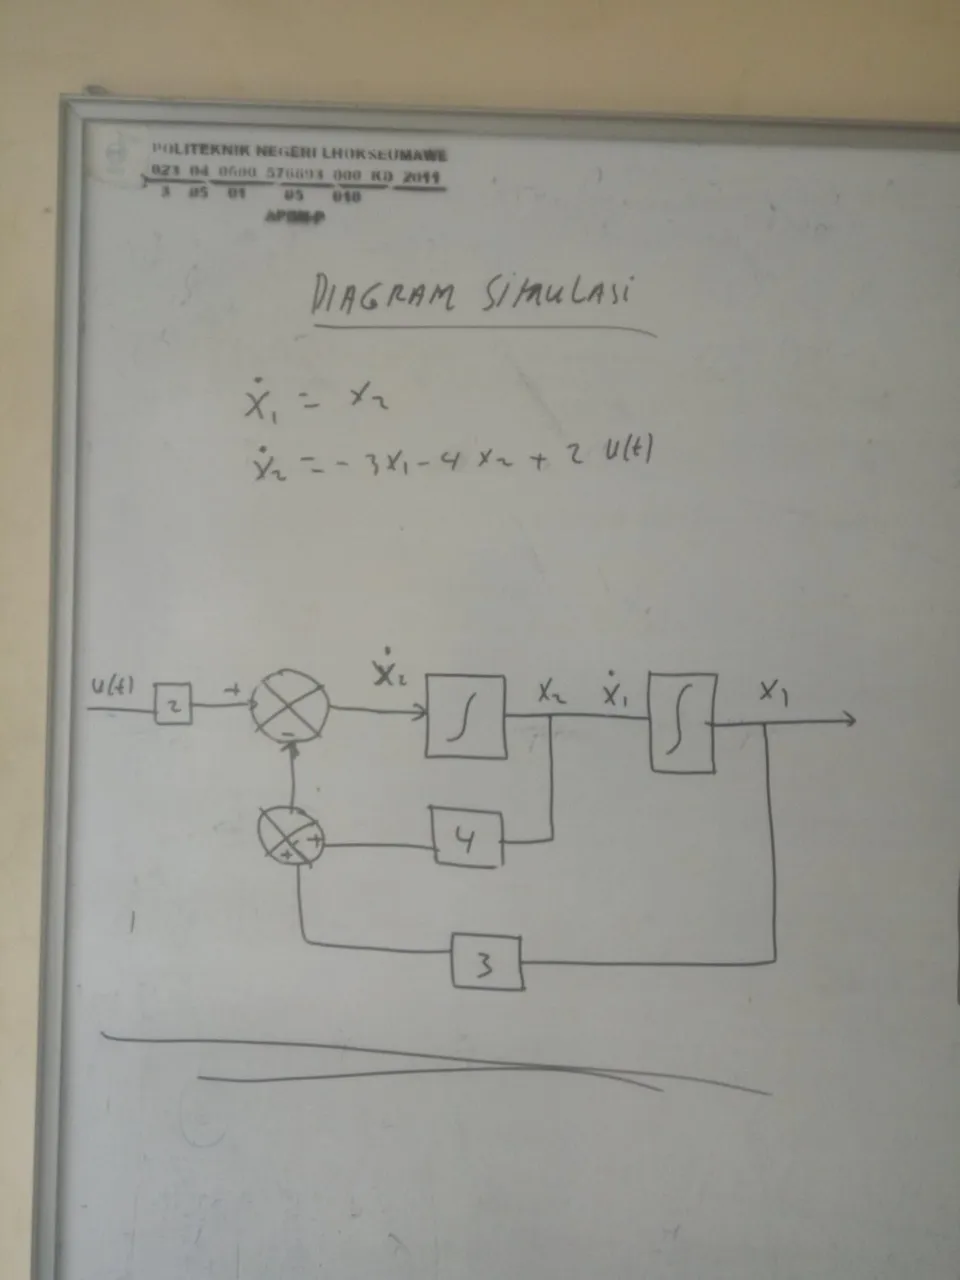 POLITEKNIK NEGERI LHOKSEUMAWE
023 04 0600 576693 000 KD 2011
3 05 01 05 010
DIAGRAM SIMULASI
ẋ₁ = x₂
ẋ₂ = - 3x₁ - 4 x₂ + 2 u(t)
u(t) 2 + - ẋ₂ ∫ x₂ ẋ₁ ∫ x₁
+ + 4
3